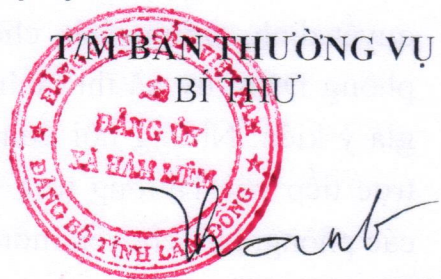 T/M BAN THƯỜNG VỤ
BÍ THƯ
ĐẢNG CỘNG SẢN VIỆT NAM
ĐẢNG ỦY
XÃ HÀM LIÊM
ĐẢNG BỘ TỈNH LÂM ĐỒNG